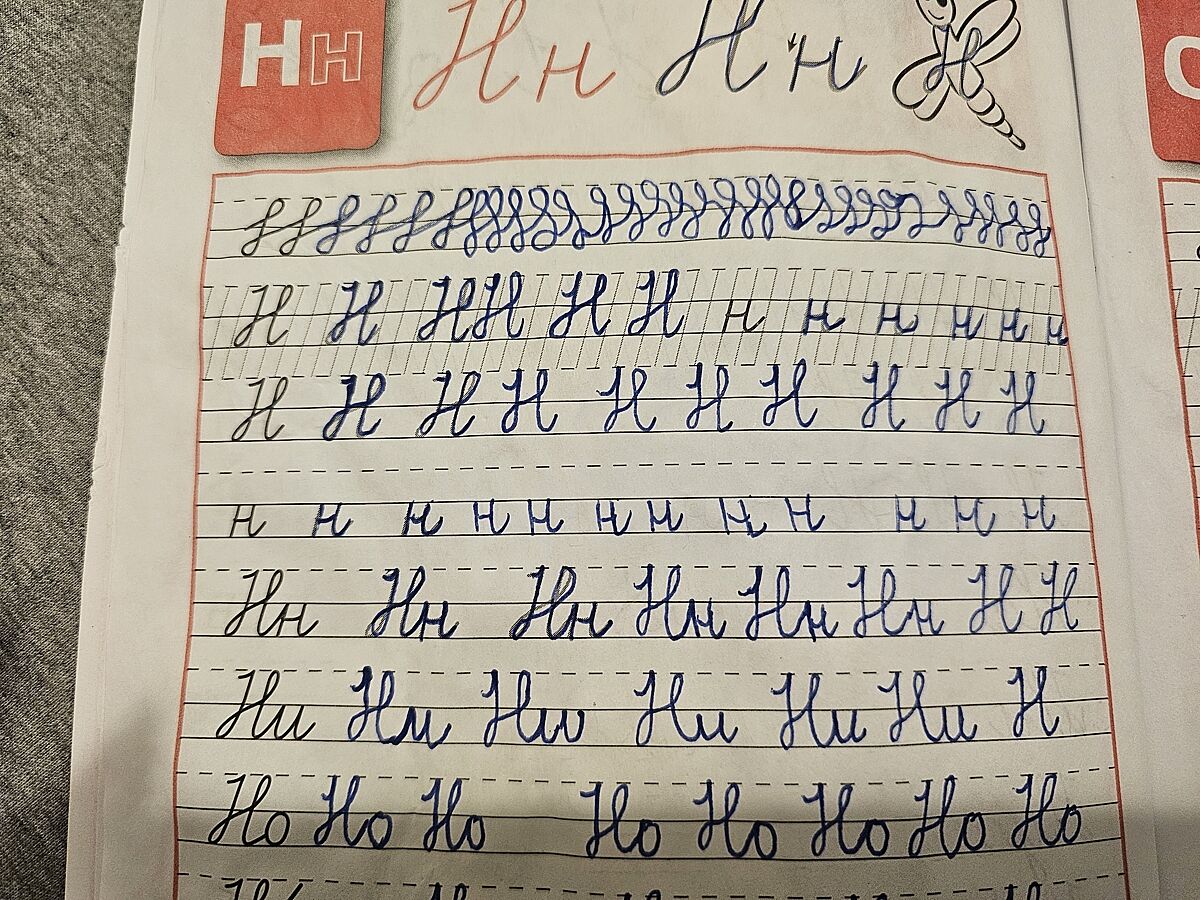 Н н Н н Н н Н
Н Н Н Н Н Н н н н н н н
Н Н Н Н Н Н Н Н Н Н
н н н н н н н н н н н н
Нн Нн Нн Нн Нн Нн Н Н
Ни Ни Ни Ни Ни Ни Н
Но Но Но Но Но Но Но Но